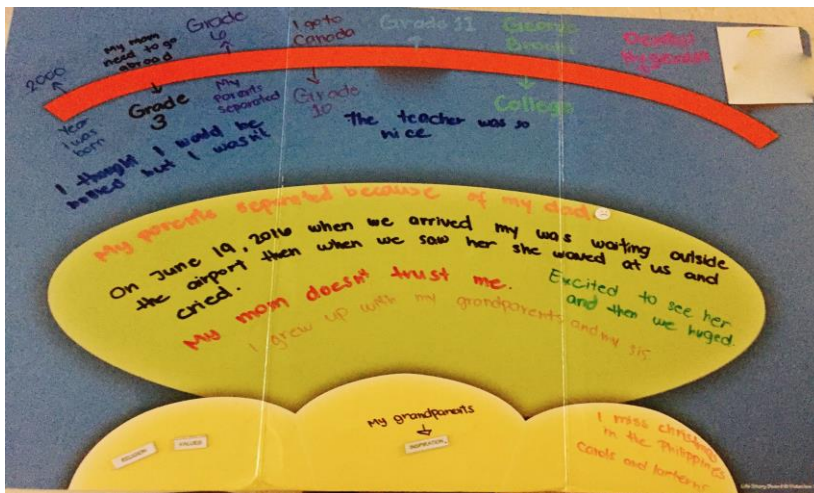 2000
Year
I was
born
My mom
need to go
abroad
Grade
3
Grade
6
My
parents
separated
I go to
Canada
Grade
10
Grade 11
George
College
Dental
Hygienist
I thought I would be
bullied but I wasn't
The teacher was so
nice.
My parents separated because of my dad.
On June 19, 2016 when we arrived my was waiting outside
the airport then when we saw her she waved at us and
cried.
My mom doesn't trust me.
Excited to see her
and then we huged.
I grew up with my grandparents and my sis
RELIGION
VALUES
My grandparents
INSPIRATION
I miss christmas
in the Philippines
Carols and lanterns